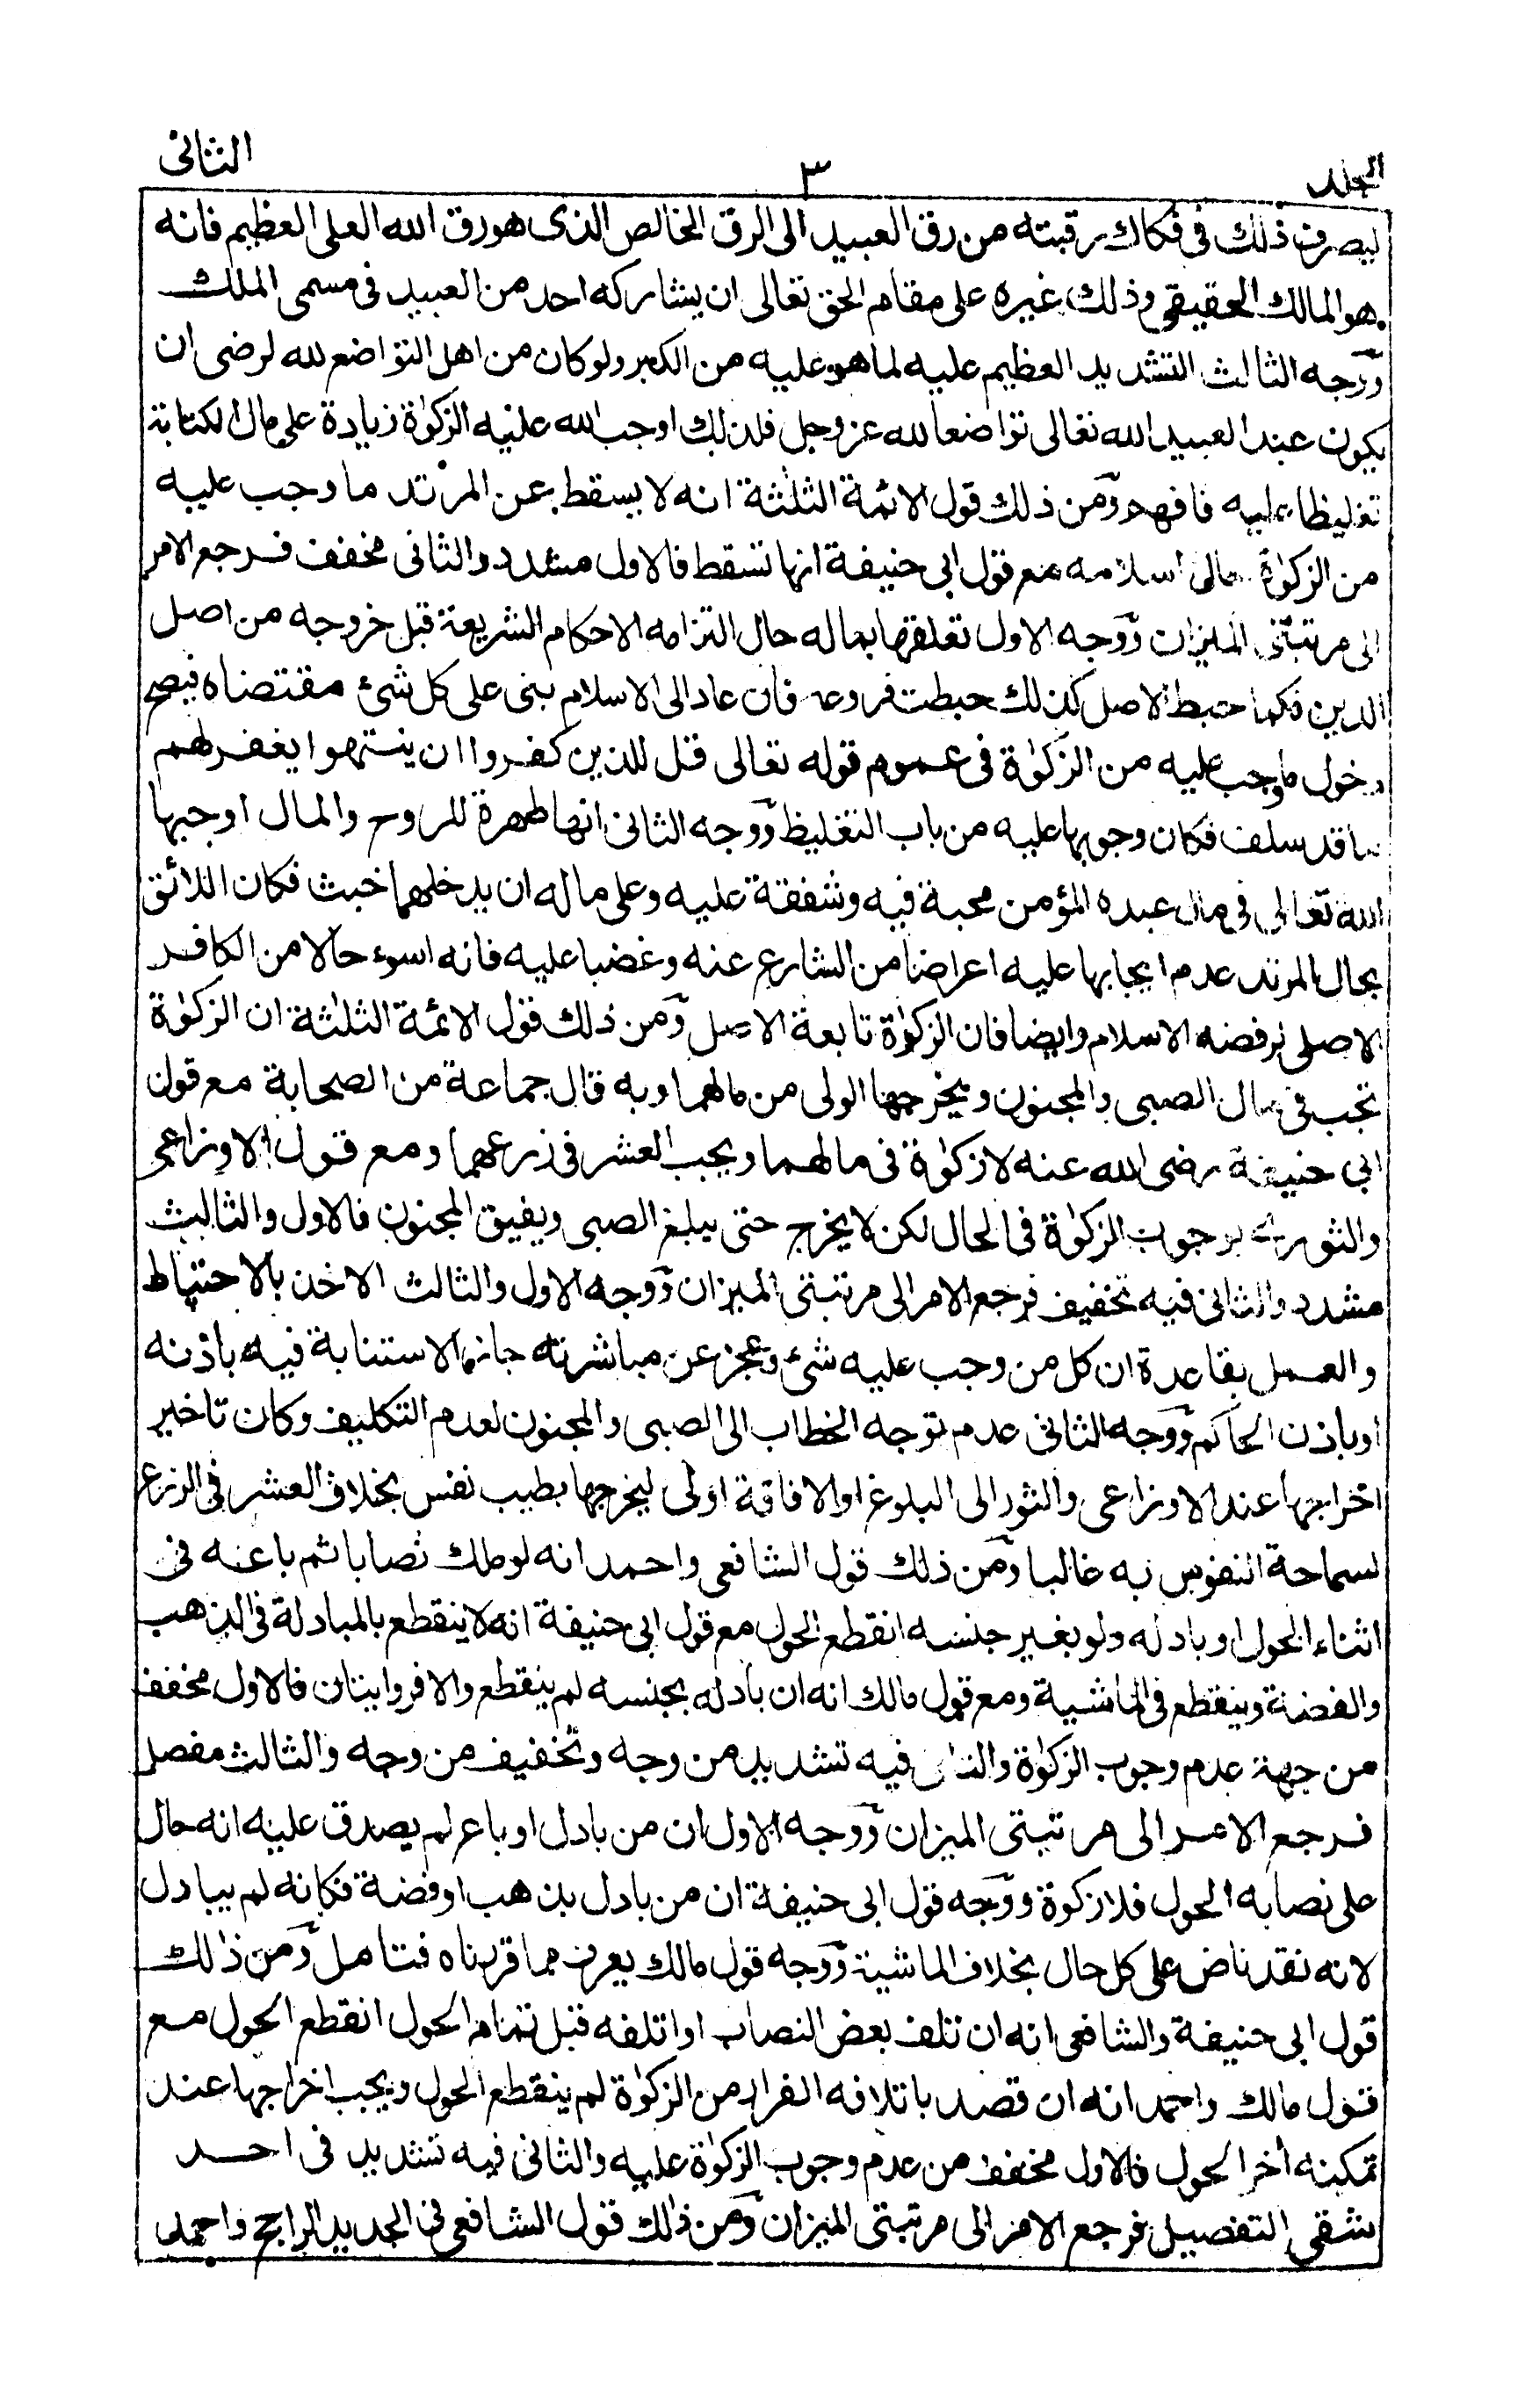 الجلد ٣ الثانى
ليصرف ذلك فى فكاك رقبته من رق العبيد الى الرق الخالص الذى هو رق الله العلى العظيم فانه
هو المالك الحقيقى وذلك غيره على مقام الحق تعالى ان يشاركه احد من العبيد فى مسمى الملك
ووجه الثالث التشديد العظيم عليه لما هو عليه من الكبر ولو كان من اهل التواضع لله لرضى ان
يكون عبد العبيد الله تعالى تواضعا لله عز وجل فلذلك اوجب الله عليه الزكوٰة زيادة على مال الكتابة
تغليظا عليه فافهم ومن ذلك قول الائمة الثلثة انه لا يسقط عن المرتد ما وجب عليه
من الزكوٰة حال اسلامه مع قول ابى حنيفة انها تسقط فالاول مشدد والثانى مخفف فرجع الامر
الى مرتبتى الميزان ووجه الاول تعلقها بماله حال التزامه الاحكام الشريعة قبل خروجه من اصل
الدين فكما حبط الاصل كذلك حبطت فروعه فان عاد الى الاسلام بنى على كل شئ مقتضاه فيصح
دخول ما وجب عليه من الزكوٰة فى عموم قوله تعالى قل للذين كفروا ان ينتهوا يغفر لهم
ما قد سلف فكان وجوبها عليه من باب التغليظ ووجه الثانى انها طهرة للروح والمال اوجبها
الله تعالى فى مال عبده المؤمن محبة فيه وشفقة عليه وعلى ماله ان يدخلهما خبث فكان اللائق
بحال المرتد عدم ايجابها عليه اعراضا من الشارع عنه وغضبا عليه فانه اسوء حالا من الكافر
الاصلى لرفضه الاسلام وايضا فان الزكوٰة تابعة الاصل ومن ذلك قول الائمة الثلثة ان الزكوٰة
تجب فى مال الصبى والمجنون ويخرجها الولى من مالهما وبه قال جماعة من الصحابة مع قول
ابى حنيفة رضى الله عنه لا زكوٰة فى مالهما ويجب العشر فى زرعهما ومع قول الاوزاعى
والثورى بوجوب الزكوٰة فى الحال لكن لا يخرج حتى يبلغ الصبى ويفيق المجنون فالاول والثالث
مشدد والثانى فيه تخفيف فرجع الامر الى مرتبتى الميزان ووجه الاول والثالث الاخذ بالاحتياط
والعمل بقاعدة ان كل من وجب عليه شئ وعجز عن مباشرته جاز الاستنابة فيه باذنه
او باذن الحاكم ووجه الثانى عدم توجه الخطاب الى الصبى والمجنون لعدم التكليف وكان تاخير
اخراجها عند الاوزاعى والثور الى البلوغ او الافاقة اولى ليخرجها بطيب نفس بخلاف العشر فى الزرع
لسماحة النفوس به غالبا ومن ذلك قول الشافعى واحمد انه لو ملك نصابا ثم باعه فى
اثناء الحول او بادله ولو بغير جنسه انقطع الحول مع قول ابى حنيفة انه لا ينقطع بالمبادلة فى الذهب
والفضة وينقطع فى الماشية ومع قول مالك انه ان بادله بجنسه لم ينقطع والا فروايتان فالاول مخفف
من جهة عدم وجوب الزكوٰة والثانى فيه تشديد من وجه وتخفيف من وجه والثالث مفصل
فرجع الامر الى مرتبتى الميزان ووجه الاول ان من بادل او باع لم يصدق عليه انه حال
على نصابه الحول فلا زكوة ووجه قول ابى حنيفة ان من بادل بذهب او فضة فكانه لم يبادل
لانه نقد ناض على كل حال بخلاف الماشية ووجه قول مالك يعرف مما قررناه فتامل ومن ذلك
قول ابى حنيفة والشافعى انه ان تلف بعض النصاب او اتلفه قبل تمام الحول انقطع الحول مع
قول مالك واحمد انه ان قصد باتلافه الفرار من الزكوٰة لم ينقطع الحول ويجب اخراجها عند
تمكينه أخر الحول فالاول مخفف من عدم وجوب الزكوٰة عليه والثانى فيه تشديد فى احد
شقى التفصيل فرجع الامر الى مرتبتى الميزان ومن ذلك قول الشافعى فى الجديد الراجح واحمد